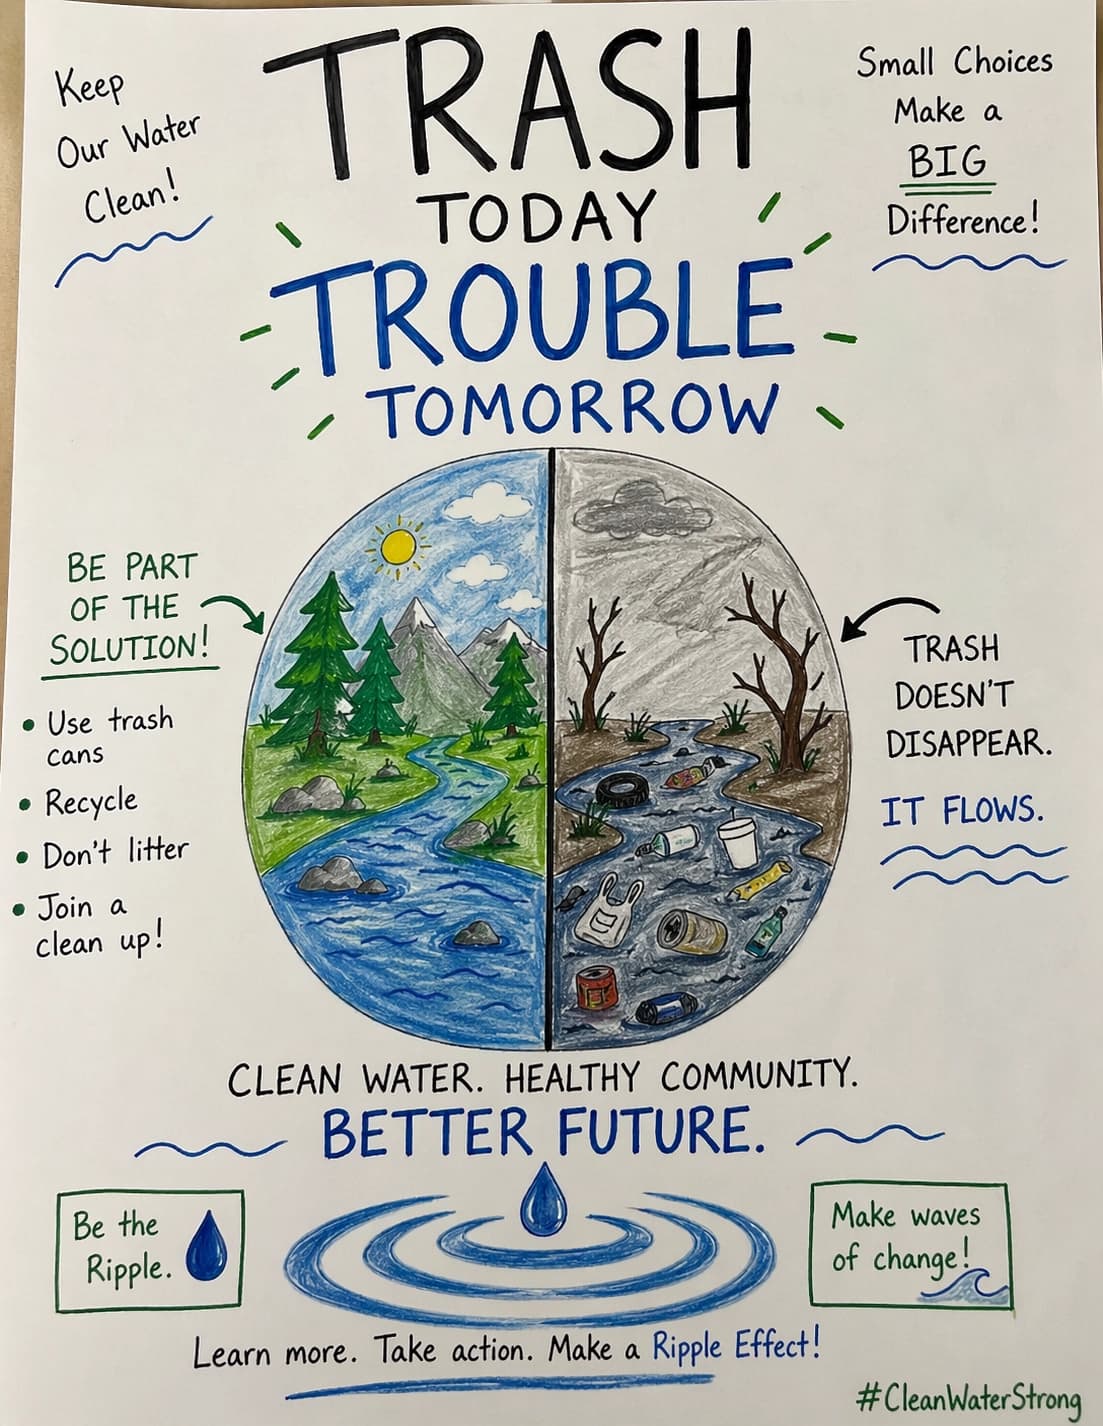 Keep
Our Water
Clean!
TRASH
TODAY
TROUBLE
TOMORROW
Small Choices
Make a
BIG
Difference!
BE PART
OF THE
SOLUTION!
• Use trash
cans
• Recycle
• Don't litter
• Join a
clean up!
TRASH
DOESN'T
DISAPPEAR.
IT FLOWS.
CLEAN WATER. HEALTHY COMMUNITY.
BETTER FUTURE.
Be the
Ripple.
Make waves
of change!
Learn more. Take action. Make a Ripple Effect!
#CleanWaterStrong